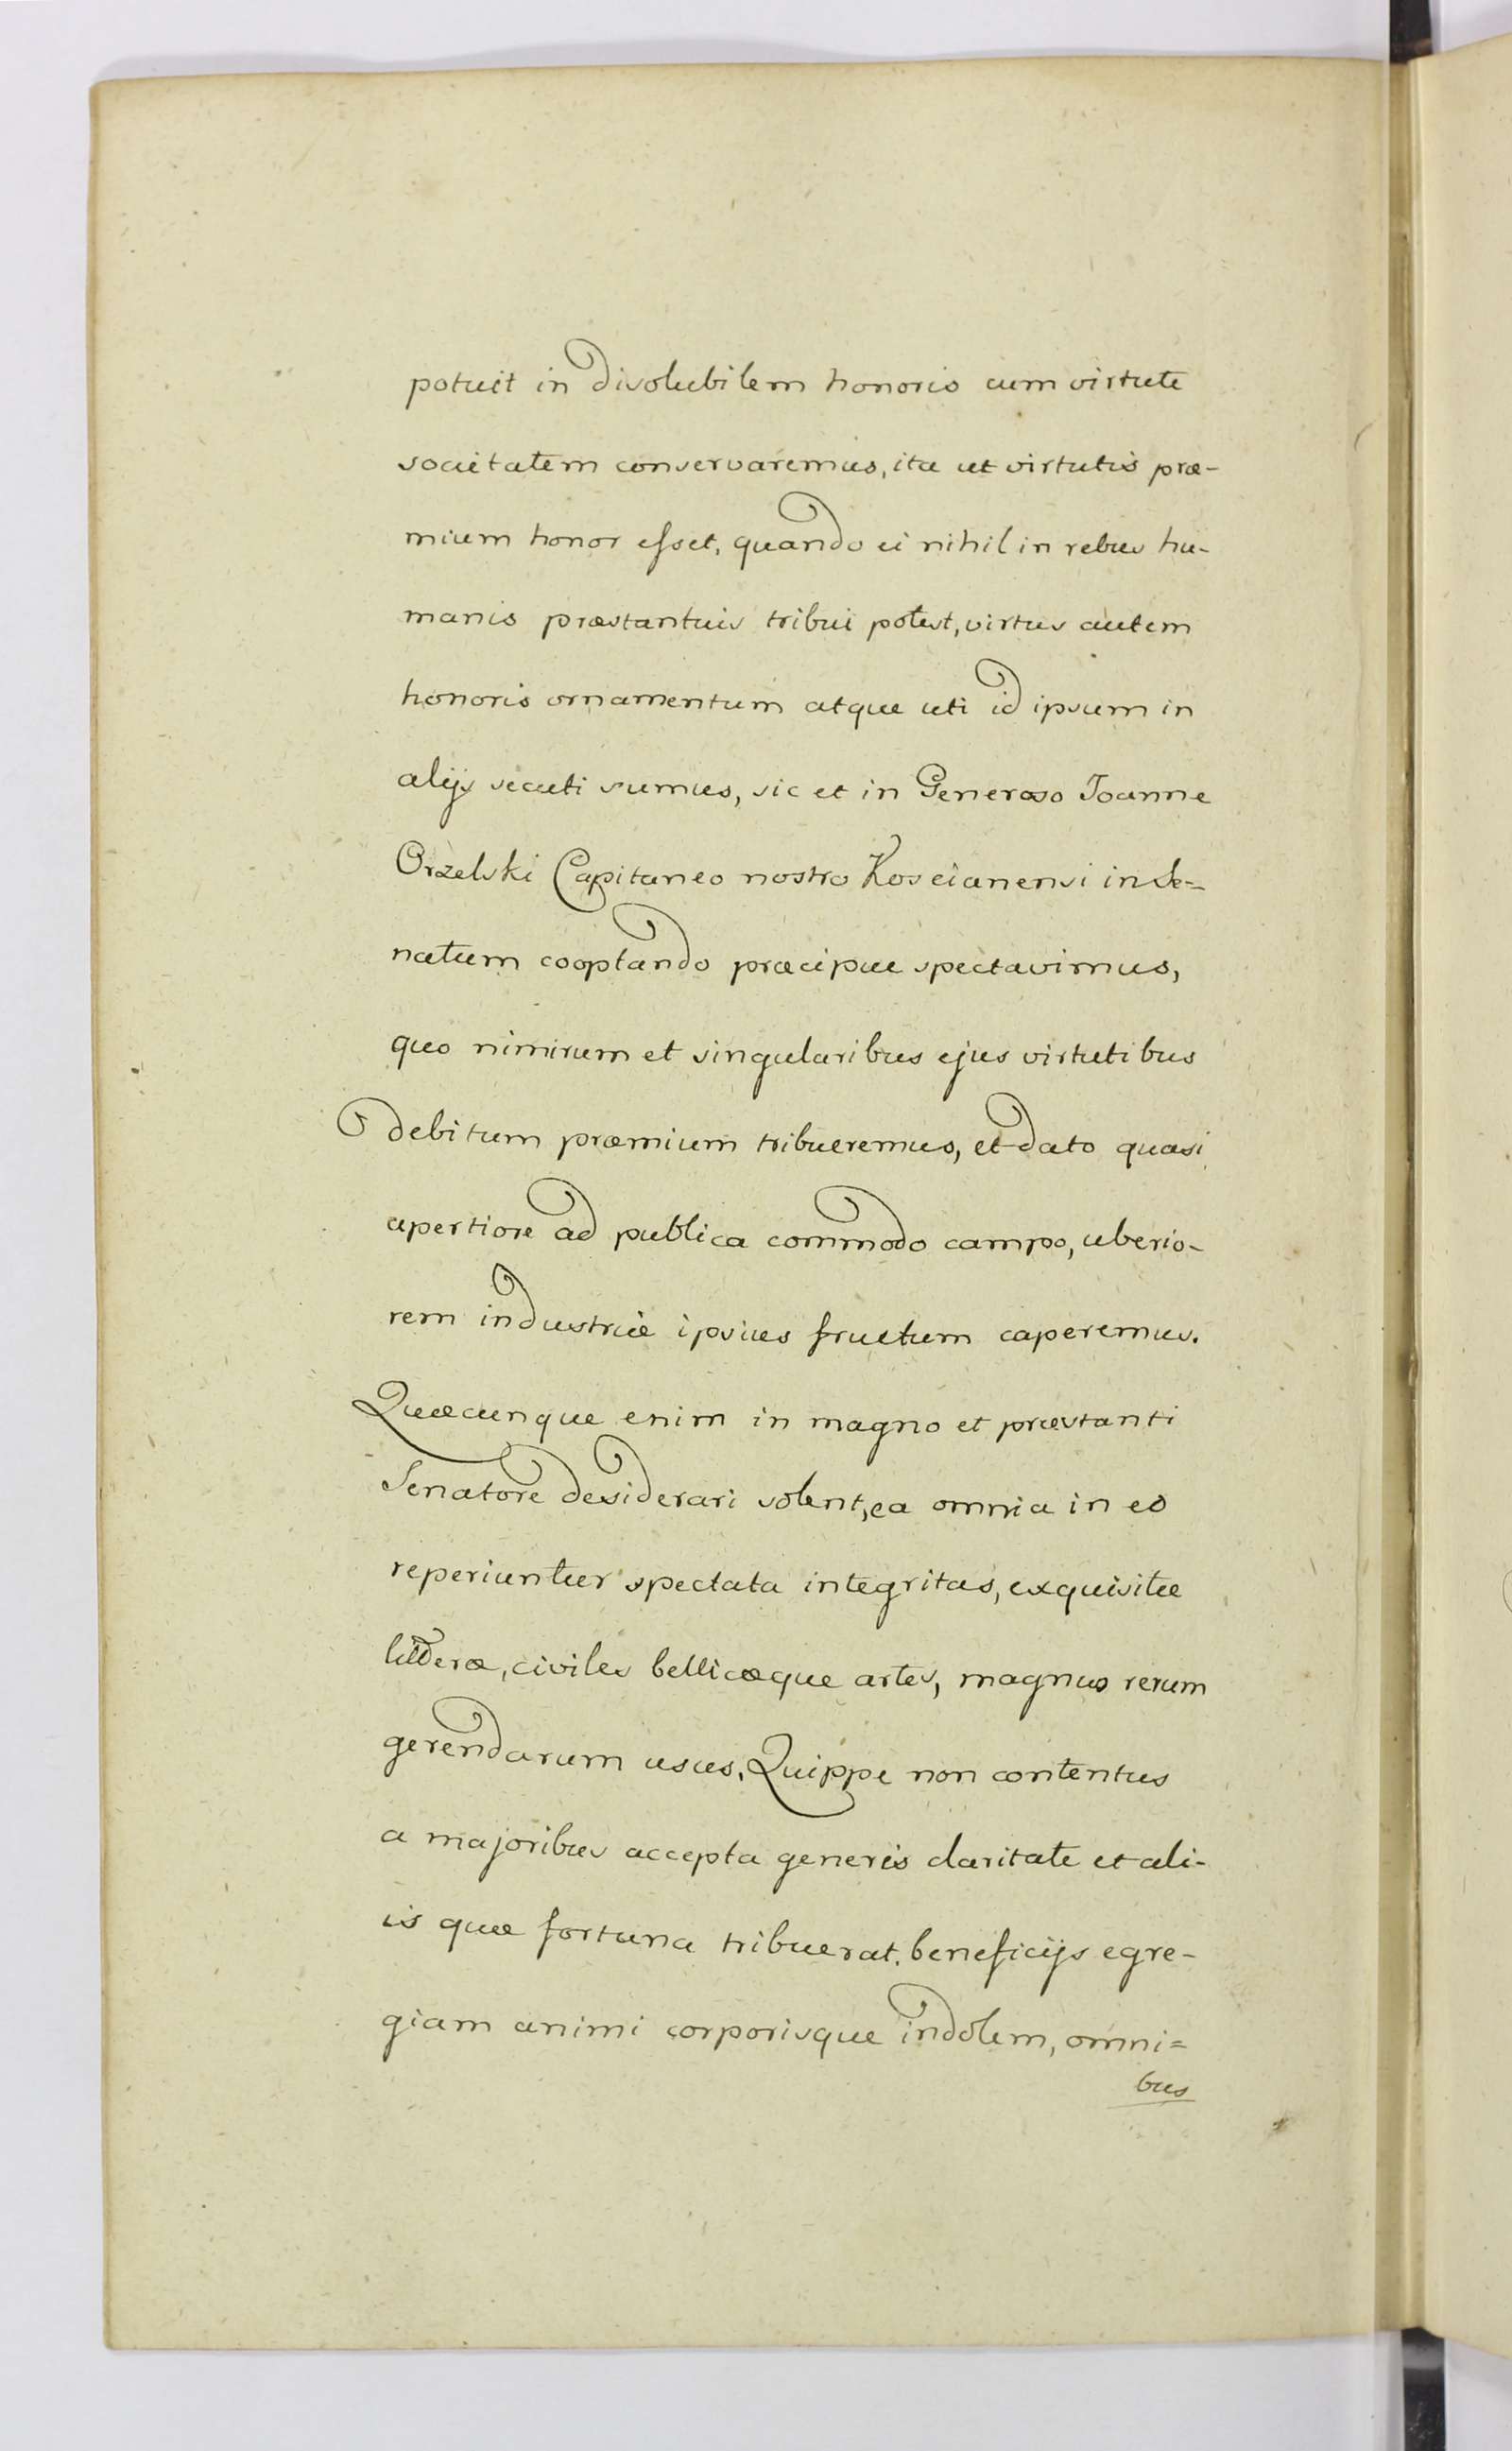 potuit in divolubilem honoris cum virtute
societatem conservaremus, ita ut virtutis præ-
mium honor esset, quando ei nihil in rebus hu-
manis præstantius tribui potest, virtus autem
honoris ornamentum atque uti id ipsum in
alijs secuti sumus, sic et in Generoso Joanne
Orzelski Capitaneo nostro Koscianensi in Se-
natum cooptando præcipue spectavimus,
quo nimirum et singularibus ejus virtutibus
debitum præmium tribueremus, et dato quasi
apertiore ad publica commodo campo, uberio-
rem industriæ ipsius fructum caperemus.
Quæcunque enim in magno et præstanti
Senatore desiderari solent, ea omnia in eo
reperiuntur spectata integritas, exquisitæ
litteræ, civiles bellicæque artes, magnus rerum
gerendarum usus. Quippe non contentus
a majoribus accepta generis claritate et ali-
is quæ fortuna tribuerat. beneficijs egre-
giam animi corporisque indolem, omni=
bus